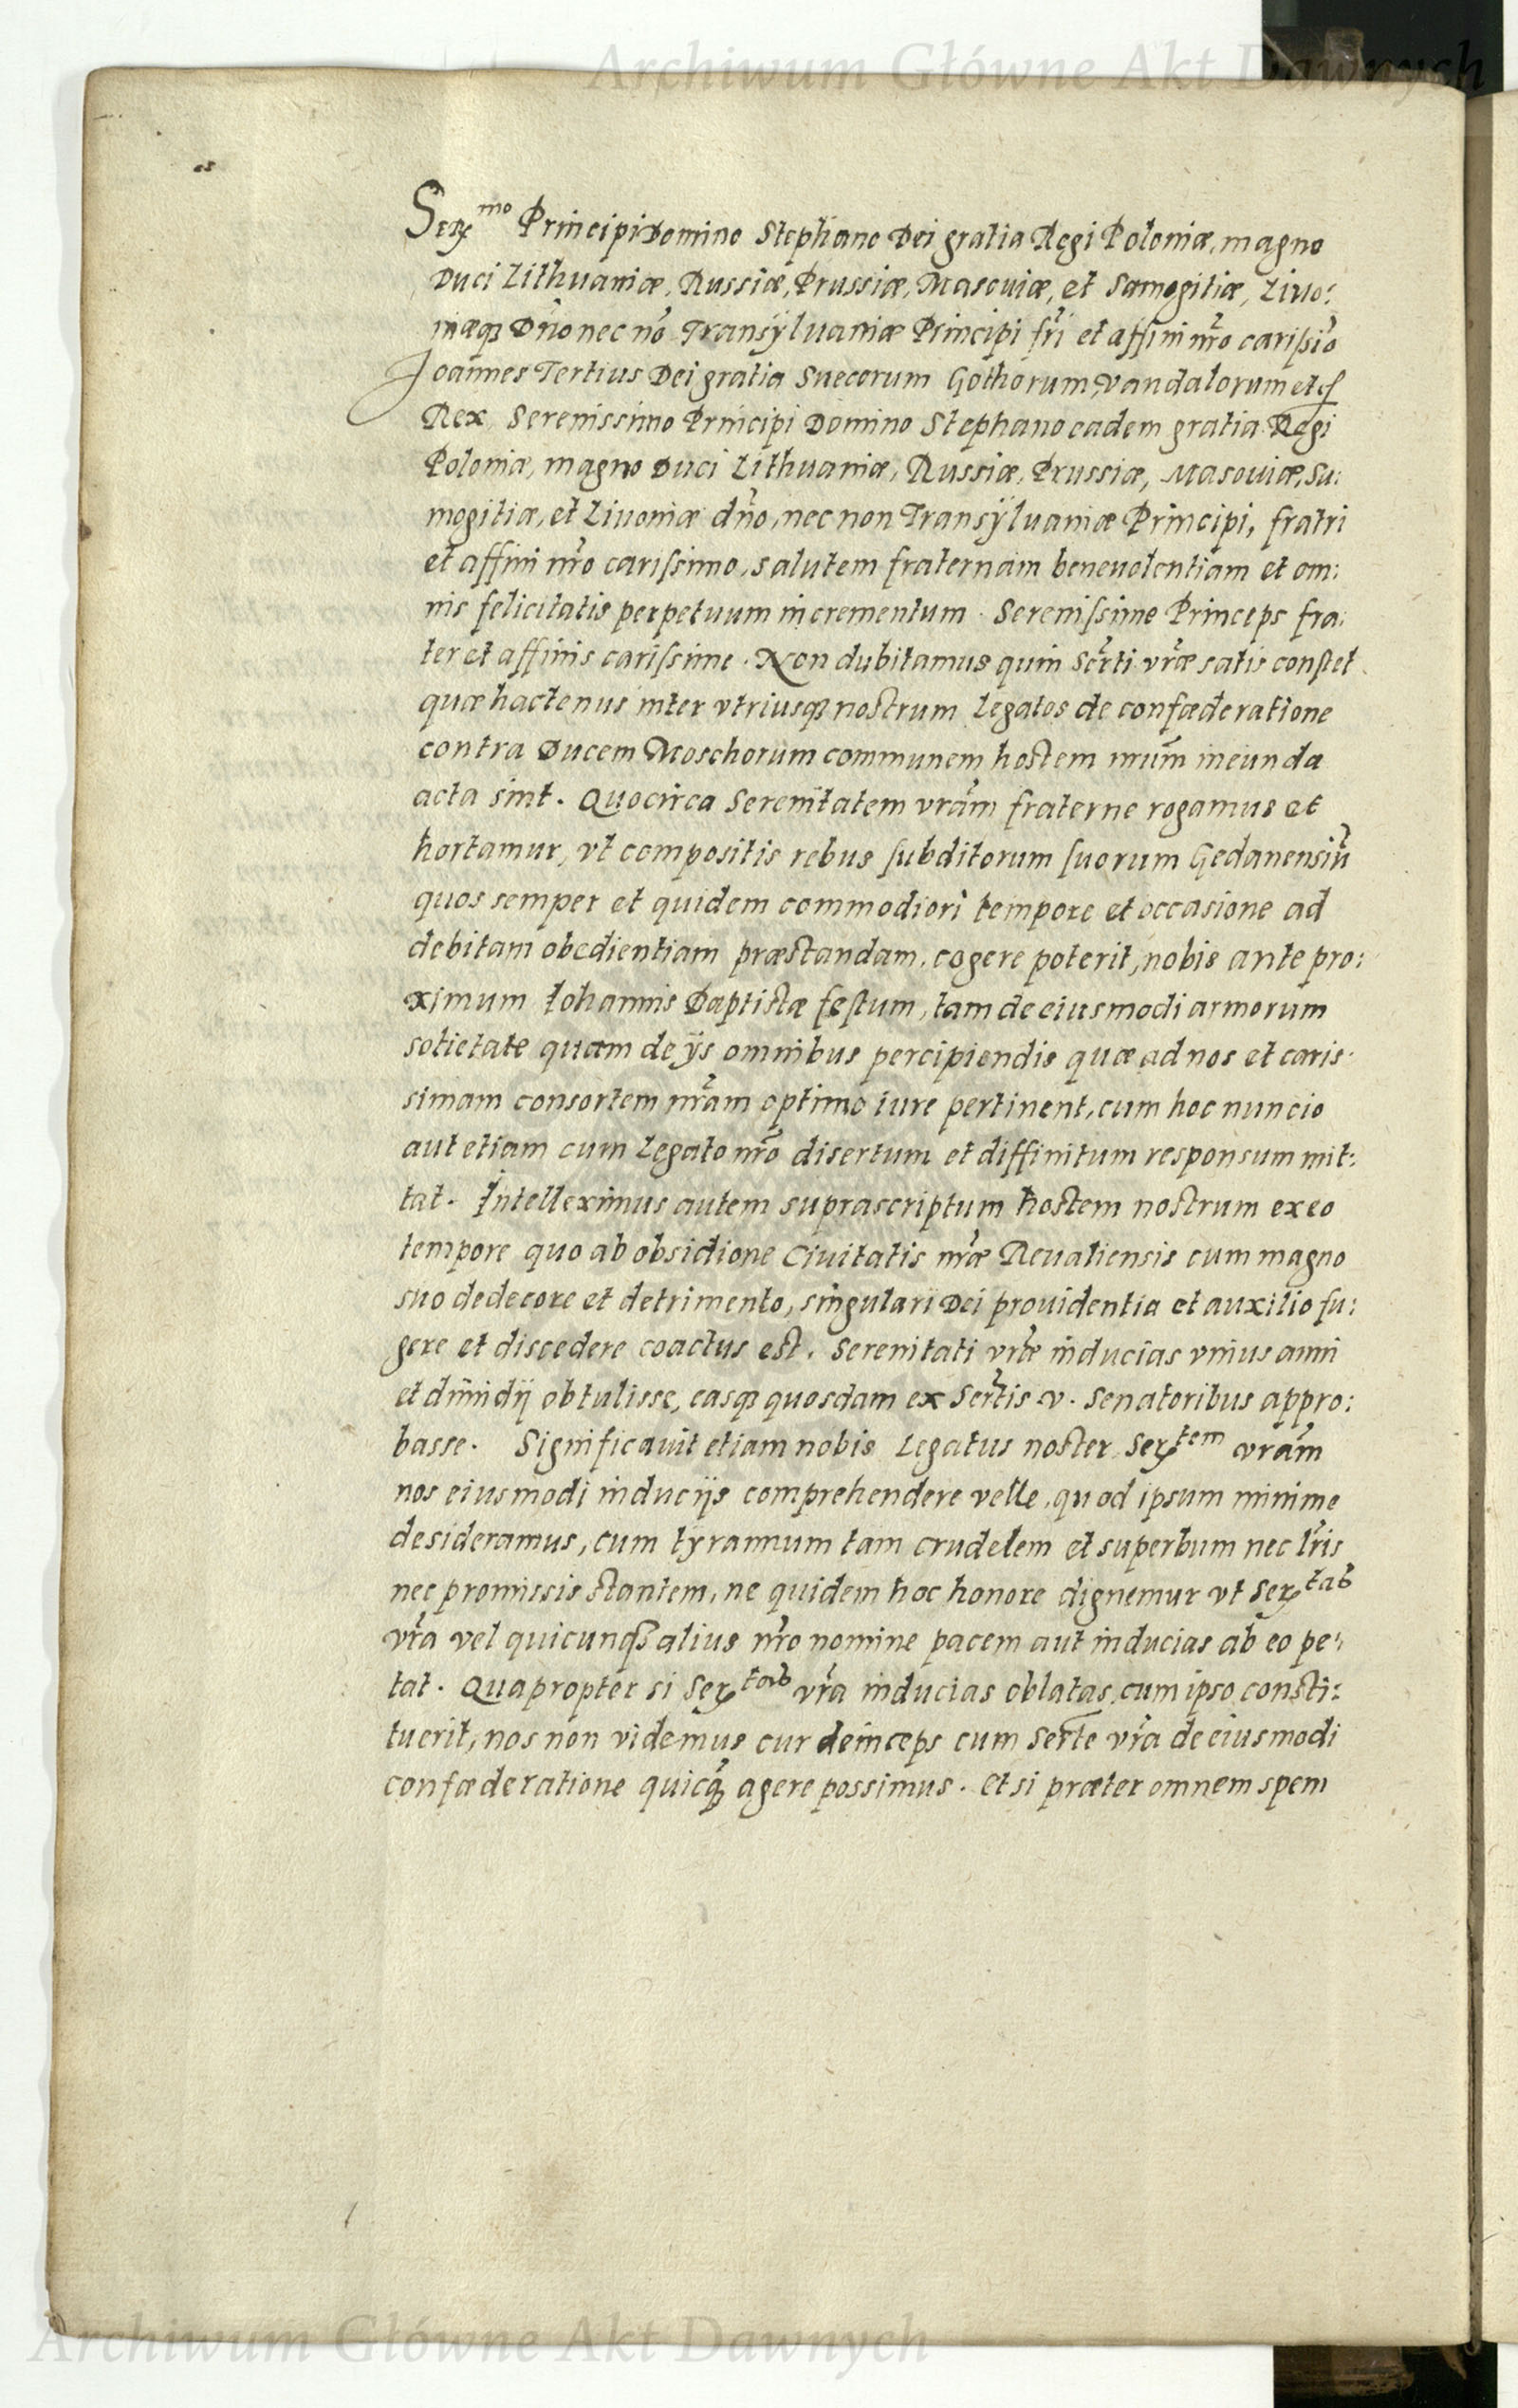 Archiwum Główne Akt Dawnych
Ser^mo Principi Domino Stephano Dei gratia Regi Poloniæ, magno
Duci Lithuaniæ, Russiæ, Prussiæ, Masouiæ, et Samogitiæ, Liuo:
niæq; Dño nec nõ Transÿluaniæ Principi frĩ et affini nr̃o carißio
Joannes Tertius Dei gratia Suecorum Gothorum, Vandalorum etc
Rex, Serenissimo Principi Domino Stephano eadem gratia Regi
Poloniæ, magno Duci Lithuaniæ, Russiæ, Prussiæ, Masouiæ, Sa:
mogitiæ, et Liuoniæ dño, nec non Transÿluaniæ Principi, fratri
et affini nr̃o carissimo, salutem fraternam beneuolentiam et om:
nis felicitatis perpetuum incrementum. Serenissime Princeps fra:
ter et affinis carissime. Non dubitamus quin Serti vr̃æ satis constet
quæ hactenus inter vtriusq; nostrum Legatos de confœderatione
contra Ducem Moschorum communem hostem nrũm ineunda
acta sint. Quocirca Serenitatem vrãm fraterne rogamus et
hortamur, vt compositis rebus subditorum suorum Gedanensiũ
quos semper et quidem commodiori tempore et occasione ad
debitam obedientiam præstandam, cogere poterit, nobis ante pro:
ximum Iohannis Baptistæ festum, tam de eiusmodi armorum
sotietate quam de ijs omnibus percipiendis quæ ad nos et caris:
simam consortem nrãm optimo iure pertinent, cum hoc nuncio
aut etiam cum Legato nr̃o disertum et diffinitum responsum mit:
tat. Intelleximus autem suprascriptum hostem nostrum ex eo
tempore quo ab obsidione Ciuitatis nr̃æ Reualiensis cum magno
suo dedecore et detrimento, singulari Dei prouidentia et auxilio fu:
gere et discedere coactus est. Serenitati vr̃æ inducias vnius anni
et dimidij obtulisse, easq; quosdam ex Sertis v. Senatoribus appro:
basse. Significauit etiam nobis Legatus noster Ser^tem vrãm
nos eiusmodi inducijs comprehendere velle, quod ipsum minime
desideramus, cum tyrannum tam crudelem et superbum nec lr̃is
nec promissis stantem, ne quidem hoc honore dignemur vt Ser^tas
vr̃a vel quicunq; alius nr̃o nomine pacem aut inducias ab eo pe:
tat. Quapropter si Ser^tas vr̃a inducias oblatas cum ipso consti:
tuerit, nos non videmus cur deinceps cum Serte vr̃a de eiusmodi
confœderatione quicq̃ agere possimus. Et si præter omnem spem
Archiwum Główne Akt Dawnych